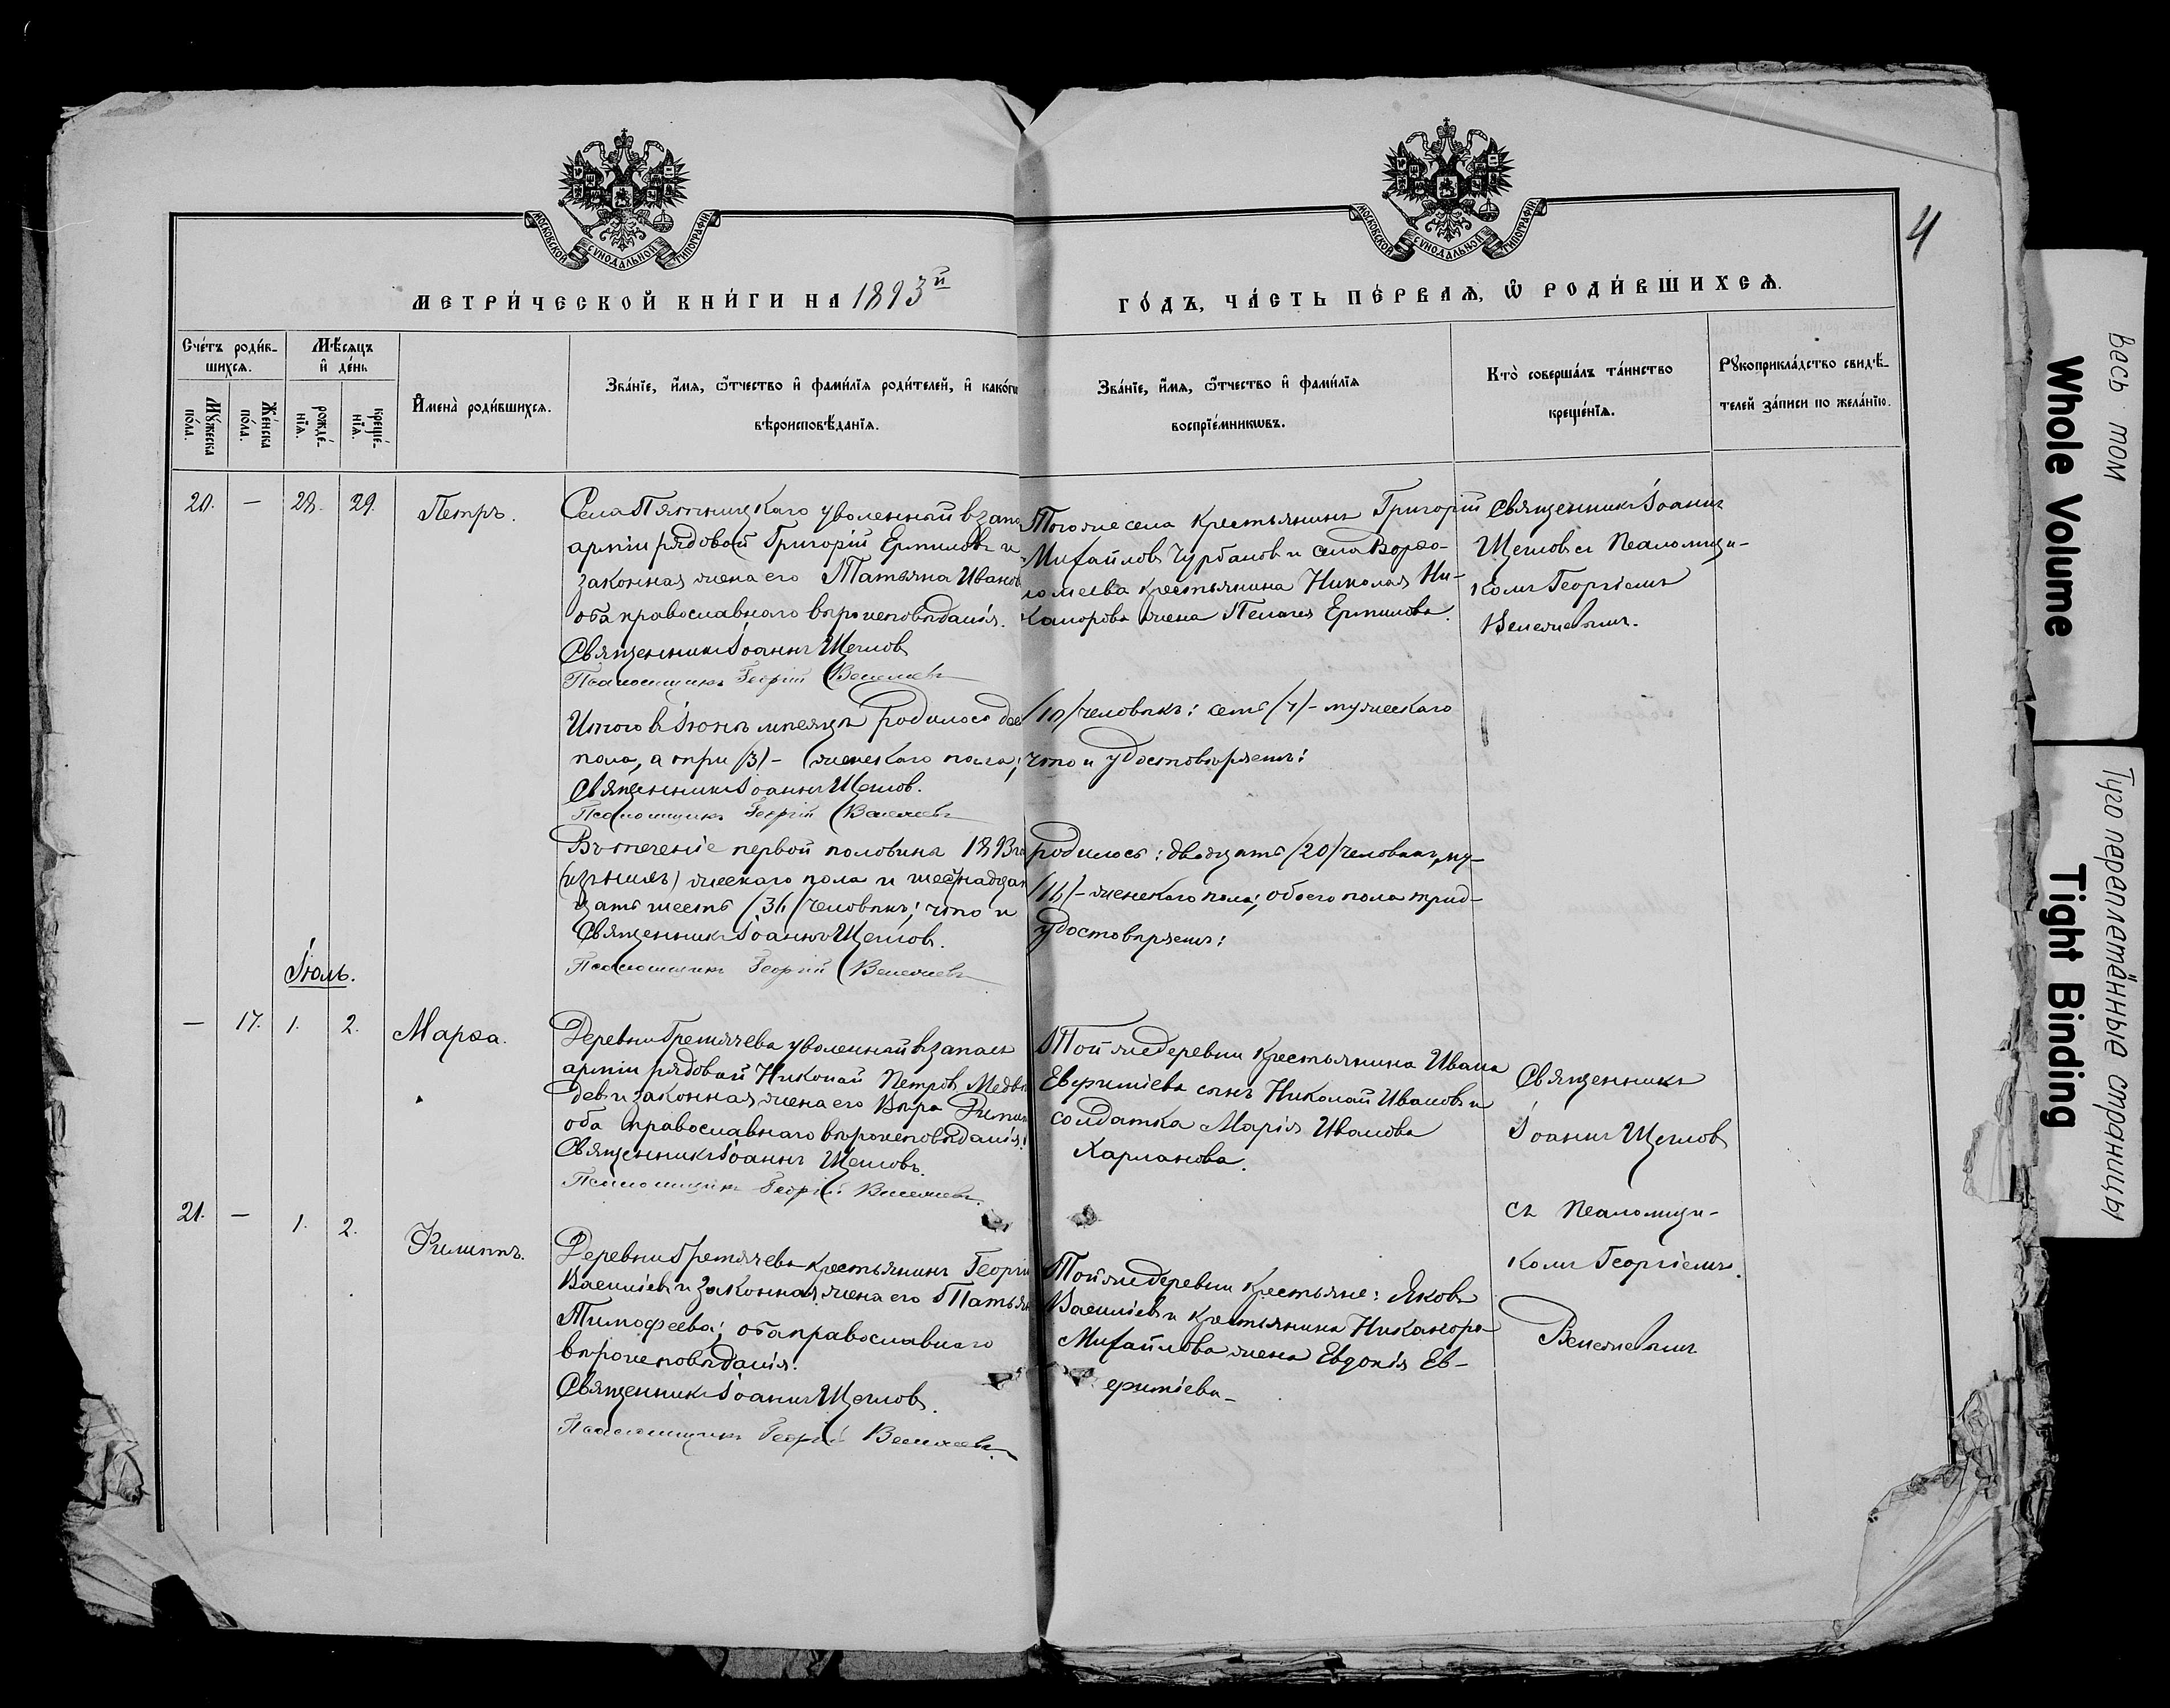 МОСКОВСКОЙ СУНОДАЛЬНОЙ ТИПОГРАФІИ
МОСКОВСКОЙ СУНОДАЛЬНОЙ ТИПОГРАФІИ
4
МЕТРИ́ЧЕСКОЙ КНИ́ГИ НА 1893й
ГО́ДЪ, ЧА́СТЬ ПЕ́РВАѦ, Ѡ РОДИ́ВШИХСѦ.
Сче́тъ роди́в-
шихсѧ.
Мѣ́сѧцъ
и҆ де́нь
Мꙋ́жеска
по́ла.
Же́нска
по́ла.
рожде́-
нїѧ.
креще́-
нїѧ.
И҆мена̀ роди́вшихсѧ.
Зва́нїе, и҆́мѧ, ѻ҆́тчество и҆ фами́лїѧ роди́телей, и҆ како́гѡ
вѣроисповѣ́данїѧ.
Зва́нїе, и҆́мѧ, ѻ҆́тчество и҆ фами́лїѧ
воспрїе́мникѡвъ.
Кто̀ соверша́лъ та́инство
креще́нїѧ.
Рꙋкоприкла́дство свидѣ́-
телей за́писи по жела́нїю.
20. — 28. 29. Петръ.
Села Пятницкаго уволенный в запа
арміи рядовой Григорій Ермилов и
законная жена его Татьяна Иванов
оба православнаго вѣроисповѣданія.
Священникъ Іоаннъ Щеглов
Псаломщикъ Георгій
Тогоже села крестьянинъ Григорій
Михайлов Чурбанов и села
крестьянина Николая Ни-
канорова жена Пелагея Ермилова.
Священникъ Іоаннъ
Щеглов съ Псаломщи-
комъ Георгіемъ
Итого в Іюнѣ мѣсяцѣ родилось дес
/10/ человѣкъ: семь /7/ - мужескаго
пола, а три /3/ - женскаго пола;
что и удостовѣряемъ:
Священникъ Іоаннъ Щеглов.
Псаломщикъ Георгій
Въ теченіе первой половины 1893 го
родилось: двадцать /20/ человѣкъ му-
жескаго пола и шестнадцать
/16/ - женскаго пола; обоего пола трид-
цать шесть /36/ человѣкъ; что и
удостовѣряемъ:
Священникъ Іоаннъ Щеглов.
Псаломщикъ Георгій
Іюль.
— 17. 1. 2. Марѳа.
Деревни Гремячева уволенный в запасъ
арміи рядовой Николай Петров Медвѣ
дев и законная жена его Вѣра
оба православнаго вѣроисповѣданія.
Священникъ Іоаннъ Щегловъ.
Псаломщикъ Георгій
Той же деревни крестьянина Ивана
сынъ Николай Иванов и
солдатка Марія Иванова
Харланова.
Священникъ
Іоаннъ Щеглов
съ Псаломщи-
комъ Георгіемъ.
21. — 1. 2. Филиппъ.
Деревни Гремячева крестьянинъ Георгій
Васильев и законная жена его Татьян
Тимофеева; оба православнаго
вѣроисповѣданія.
Священникъ Іоаннъ Щеглов.
Псаломщикъ Георгій
Той же деревни крестьяне: Яковъ
Васильев и крестьянина Никанора
Михайлова жена Евдокія Ев-
Весь том
Whole Volume
Туго переплетённые страницы
Tight Binding